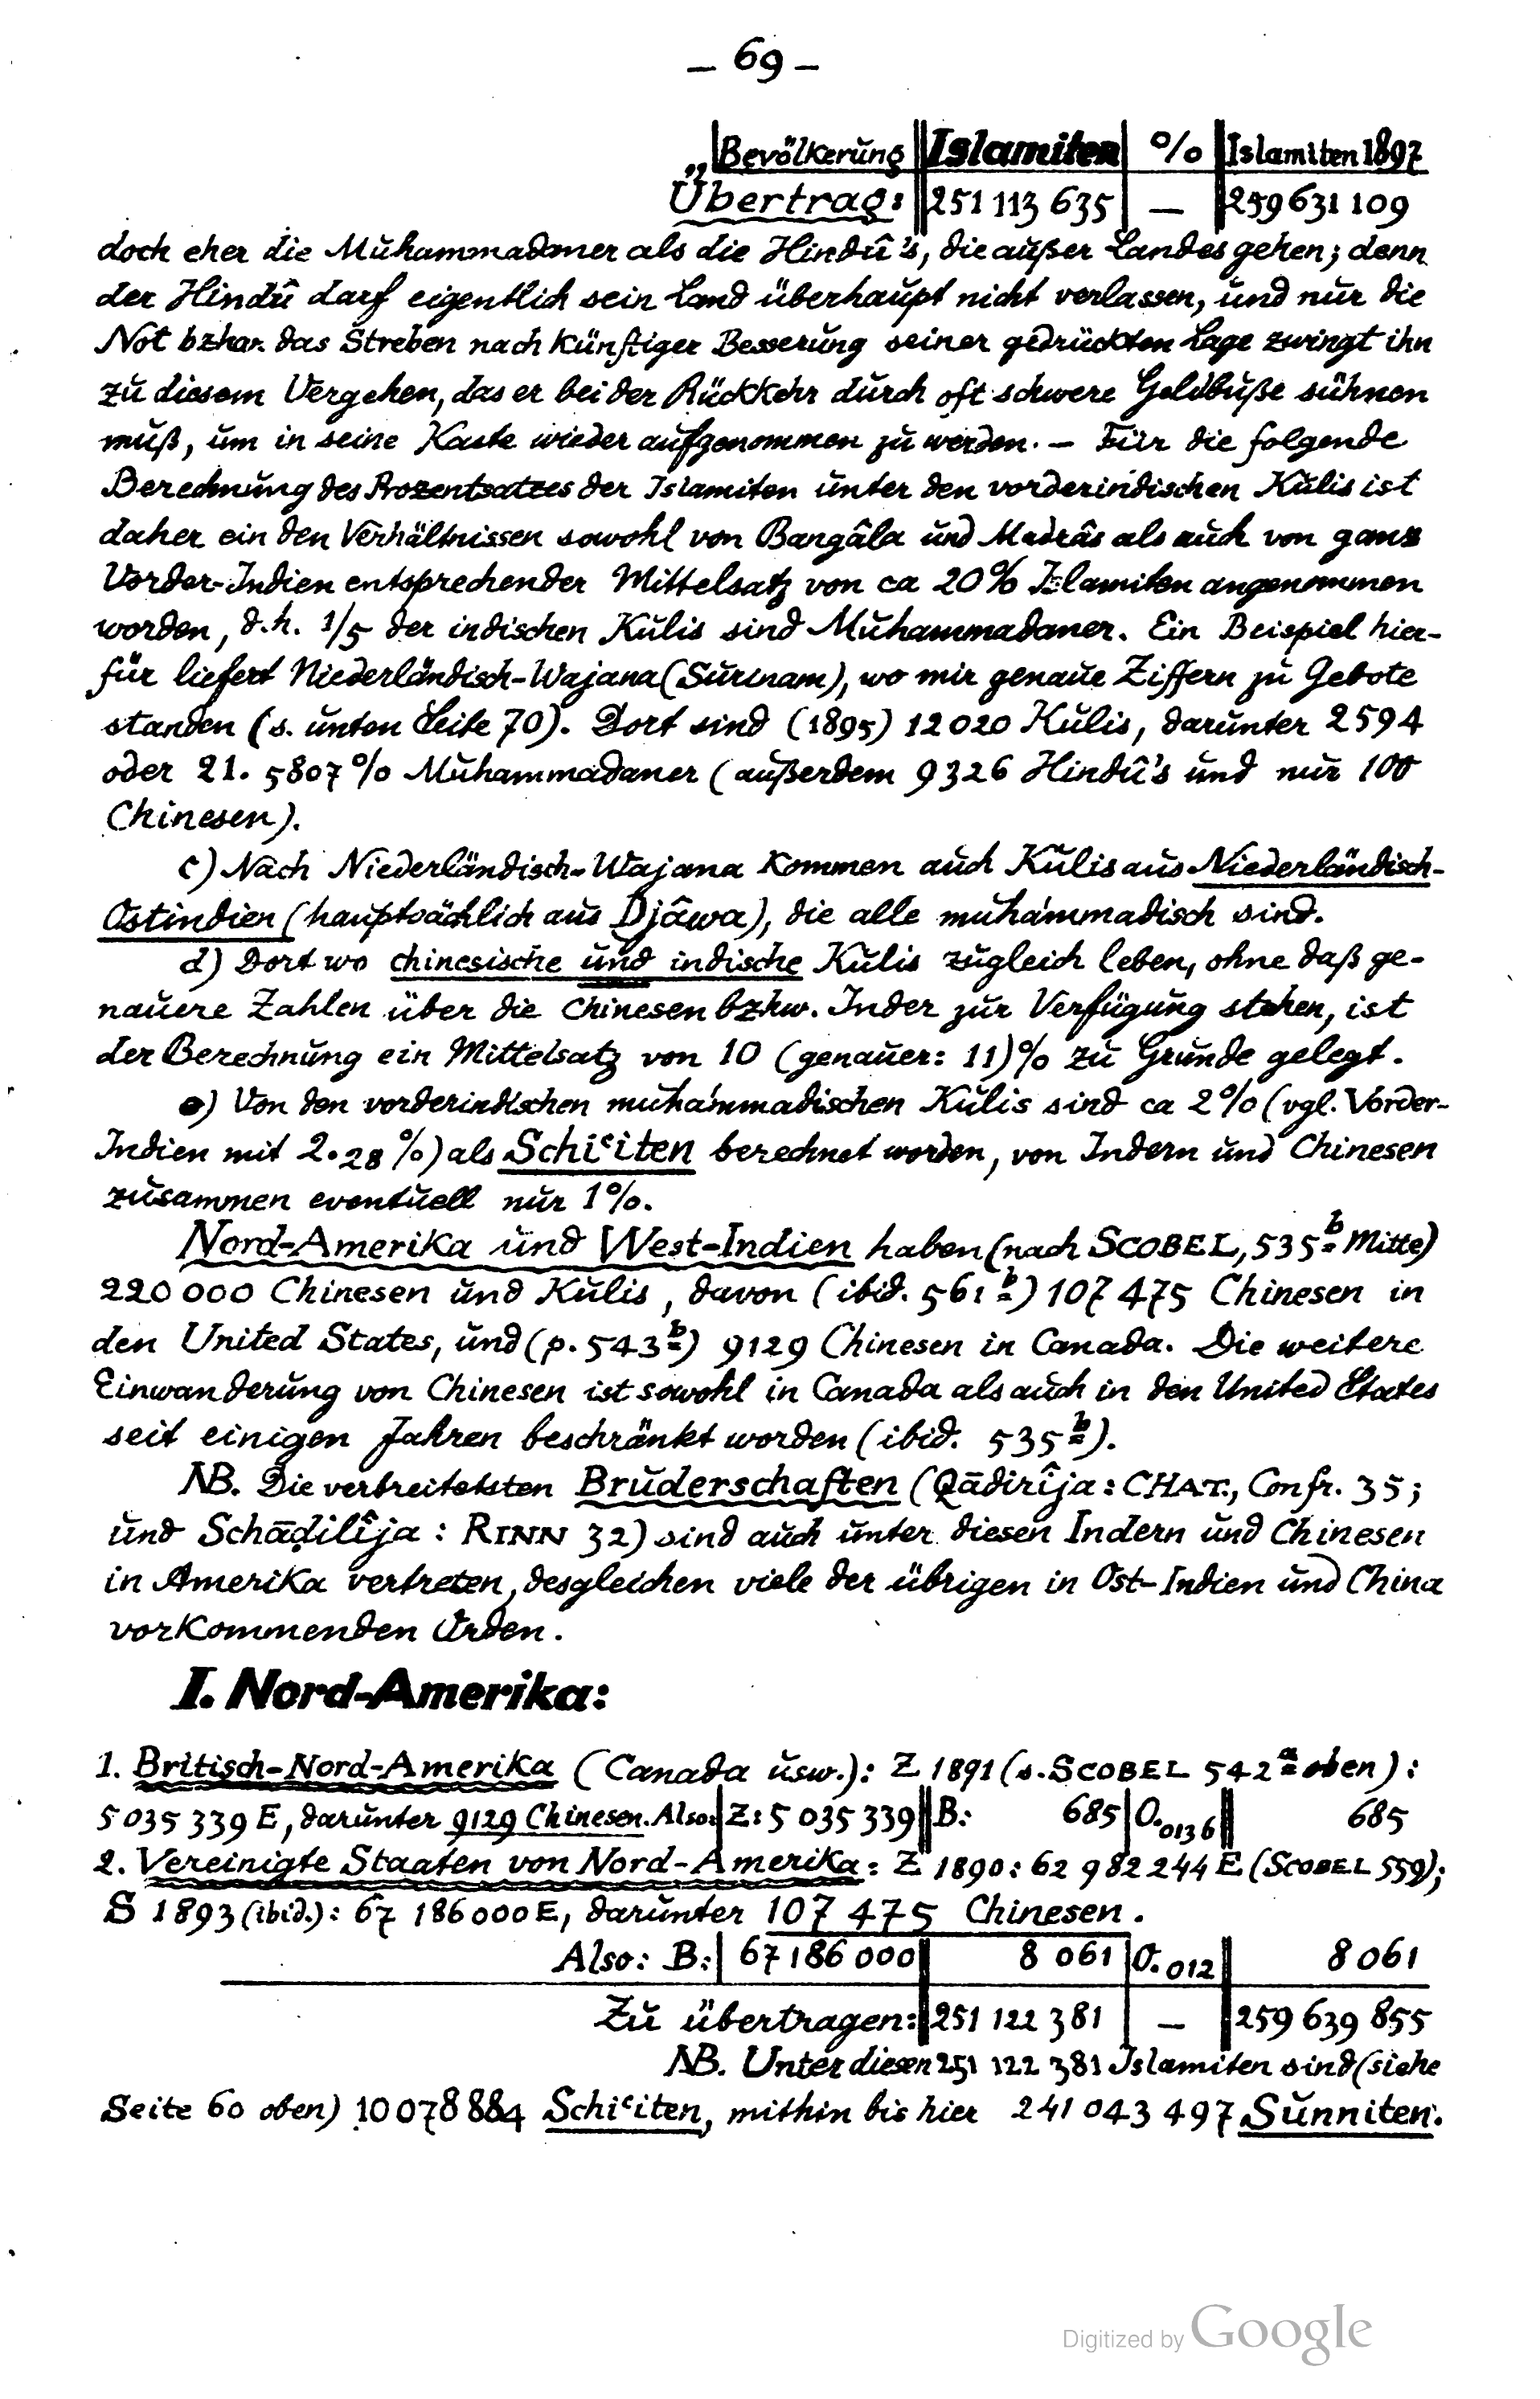 – 69 –
Bevölkerung Islamiten % Islamiten 1897
Übertrag: 251 113 635 — 259 631 109
doch eher die Muhammadaner als die Hindû's, die außer Landes gehen; denn
der Hindû darf eigentlich sein Land überhaupt nicht verlassen, und nur die
Not bzhw. das Streben nach künftiger Besserung seiner gedrückten Lage zwingt ihn
zu diesem Vergehen, das er bei der Rückkehr durch oft schwere Geldbuße sühnen
muß, um in seine Kaste wieder aufgenommen zu werden. – Für die folgende
Berechnung des Prozentsatzes der Islamiten unter den vorderindischen Kulis ist
daher ein den Verhältnissen sowohl von Bangâla und Madrâs als auch von ganz
Vorder-Indien entsprechender Mittelsatz von ca 20% Islamiten angenommen
worden, d.h. 1/5 der indischen Kulis sind Muhammadaner. Ein Beispiel hier-
für liefert Niederländisch-Wajana (Surinam), wo mir genaue Ziffern zu Gebote
standen (s. unten Seite 70). Dort sind (1895) 12 020 Kulis, darunter 2594
oder 21.5807% Muhammadaner (außerdem 9326 Hindû's und nur 100
Chinesen).
c) Nach Niederländisch-Wajana kommen auch Kulis aus Niederländisch-
Ostindien (hauptsächlich aus Djâwa), die alle muhammadisch sind.
d) Dort wo chinesische und indische Kulis zugleich leben, ohne daß ge-
nauere Zahlen über die Chinesen bzhw. Inder zur Verfügung stehen, ist
der Berechnung ein Mittelsatz von 10 (genauer: 11)% zu Grunde gelegt.
e) Von den vorderindischen muhammadischen Kulis sind ca 2% (vgl. Vorder-
Indien mit 2.28%) als Schiʿiten berechnet worden, von Indern und Chinesen
zusammen eventuell nur 1%.
Nord-Amerika und West-Indien haben (nach SCOBEL, 535b Mitte)
220 000 Chinesen und Kulis, davon (ibid. 561b) 107 475 Chinesen in
den United States, und (p. 543b) 9129 Chinesen in Canada. Die weitere
Einwanderung von Chinesen ist sowohl in Canada als auch in den United States
seit einigen Jahren beschränkt worden (ibid. 535b).
NB. Die verbreitetsten Bruderschaften (Qādirîja: CHAT., Confr. 35;
und Schāḏilîja: RINN 32) sind auch unter diesen Indern und Chinesen
in Amerika vertreten, desgleichen viele der übrigen in Ost-Indien und China
vorkommenden Orden.
I. Nord-Amerika:
1. Britisch-Nord-Amerika (Canada usw.): Z 1891 (s. SCOBEL 542a oben):
5 035 339 E, darunter 9129 Chinesen. Also: Z: 5 035 339 B: 685 0.0136 685
2. Vereinigte Staaten von Nord-Amerika: Z 1890: 62 982 244 E (SCOBEL 559);
S 1893 (ibid.): 67 186 000 E, darunter 107 475 Chinesen.
Also: B: 67 186 000 8 061 0.012 8 061
Zu übertragen: 251 122 381 — 259 639 855
NB. Unter diesen 251 122 381 Islamiten sind (siehe
Seite 60 oben) 10 078 884 Schiʿiten, mithin bis hier 241 043 497 Sunniten.
Digitized by Google